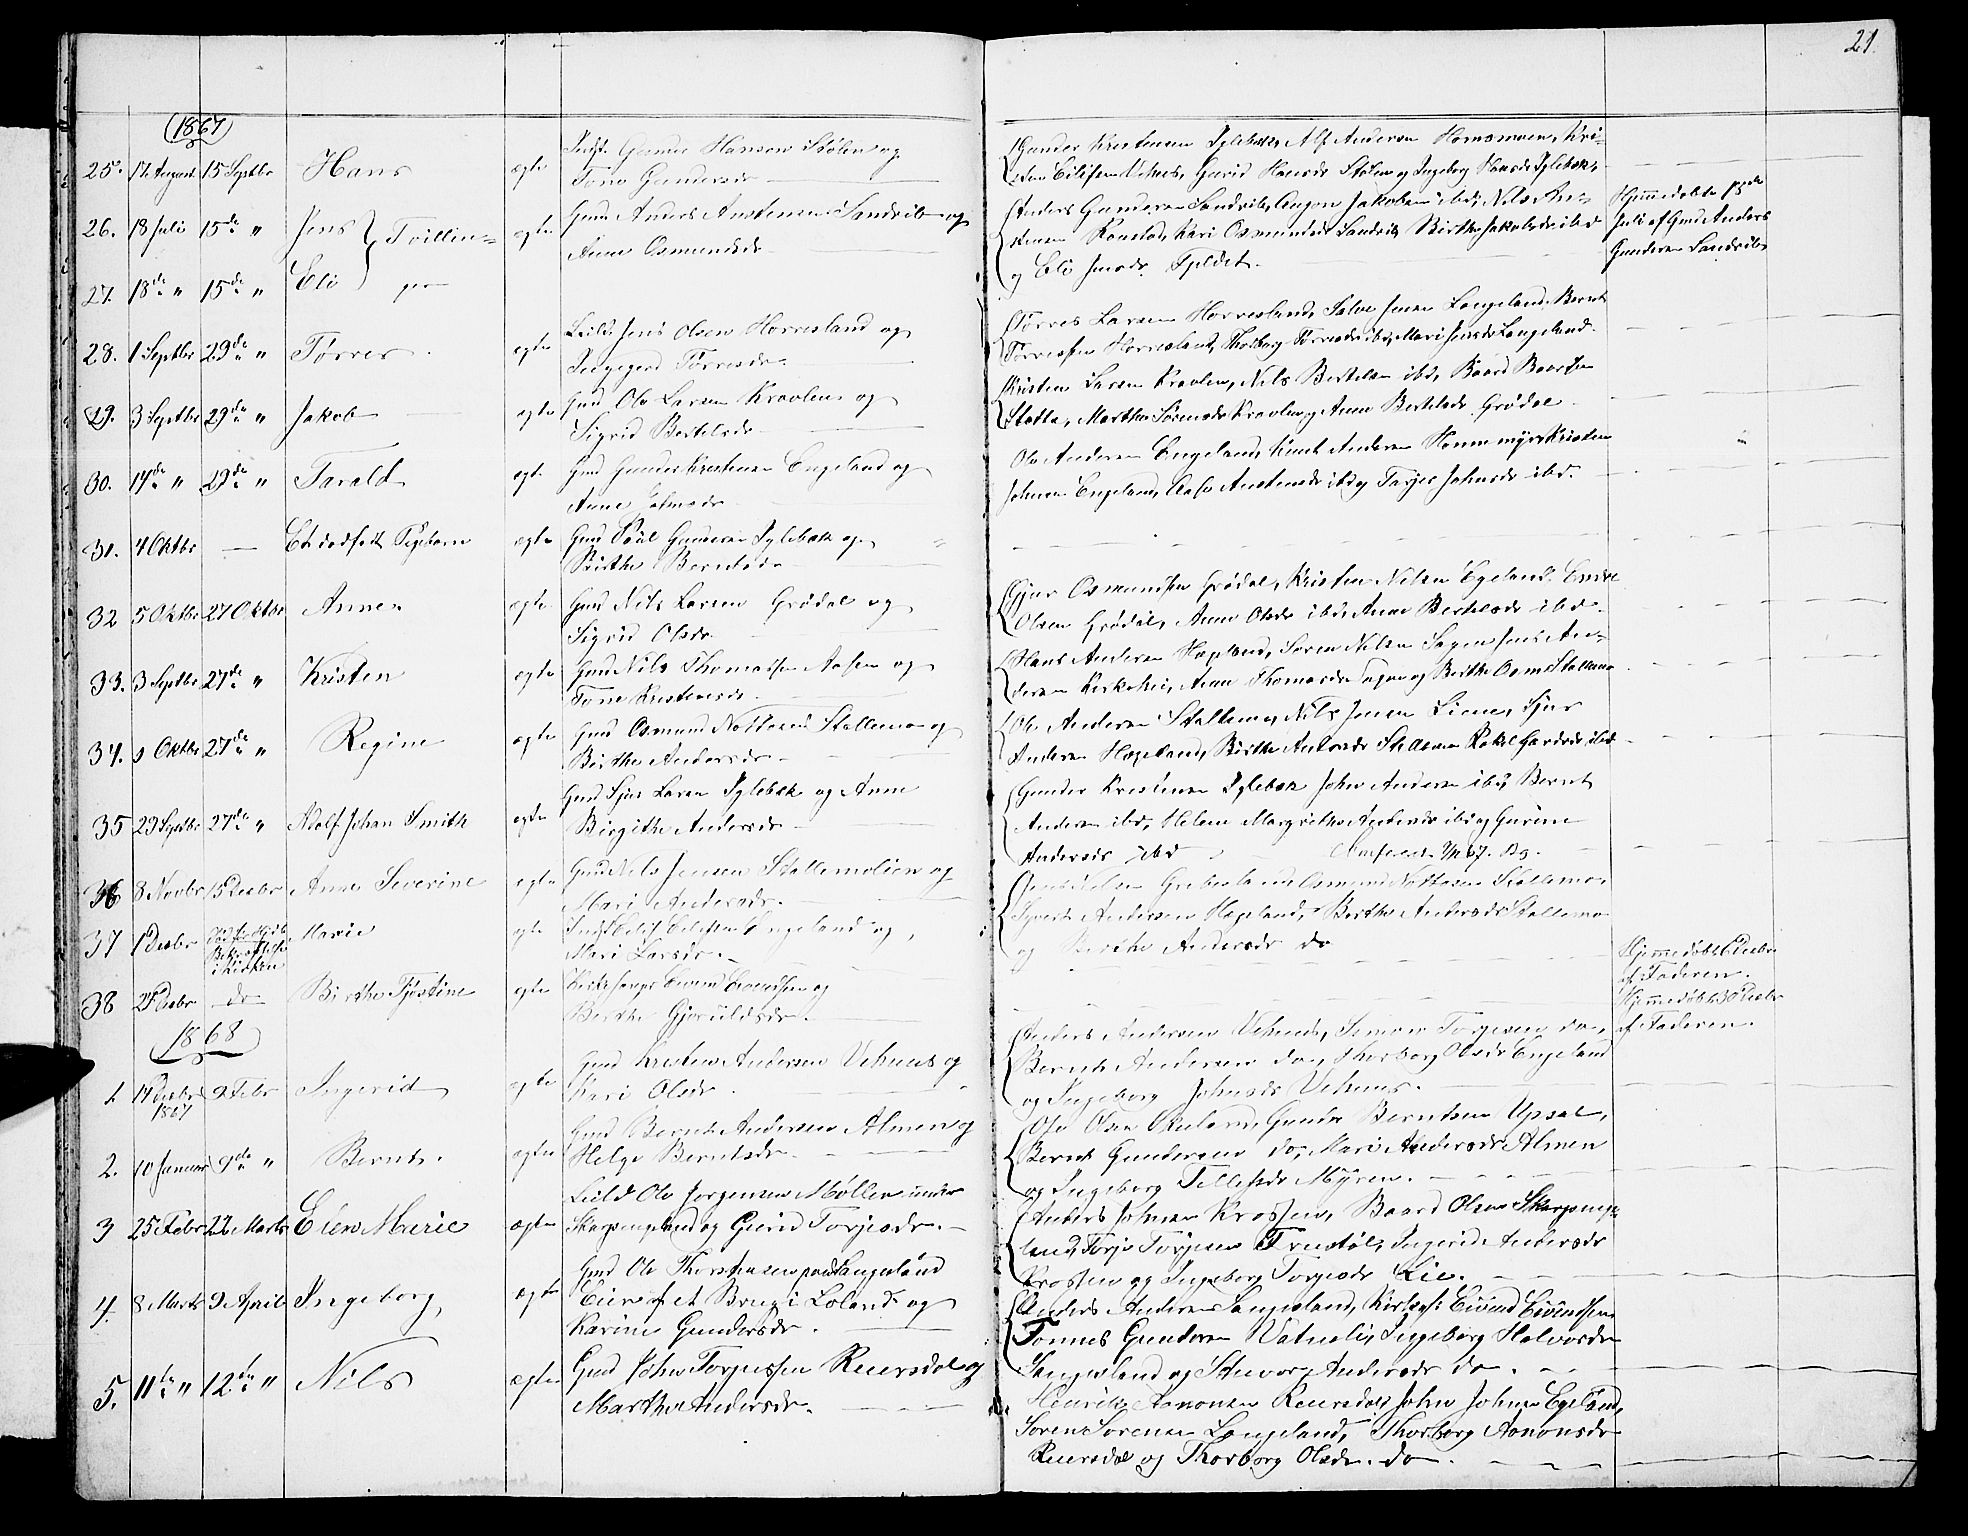 21.
(1867)
25. 17 August 15 Septbr Hans ægte Gunder Hansen Stølen og
Tone Gundersdr
Gunder Kristensen Iglebæk, Alf Andersen Homsmoen, Kri-
sten Eilefsen Vehus, Gurid Hansdr Stølen og Ingeborg Hansdr Iglebæk,
26. 18 Juli 15de " Jens } Tvillin- ægte Gmd Anders Austensen Sandrib og
Anne Osmundsdr
27. 18de " 15de " Eli } par
Anders Gundersen Sandrib, Aagon Jakobsen ibd, Nils An-
stensen Kanstad, Kari Osmundsdr Sandrib, Birthe Jakobsdr ibd
og Eli Jensdr Fjeldet.
Hjemmedøbte 18de
Juli af Gmd Anders
Gundersen Sandrib
28. 1 Septbr 29de " Tørres ægte Leild. Jens Olsen Horresland og
Ingeger Tørresdr
Tørres Larsen Horresland, Salve Jensen Langeland, Bernt
Tørressen Horresland, Thorborg Tørresdr ibd, Mari Jensdr Langeland.
29. 3 Septbr 29de " Jakob ægte Gmd Ole Larsen Kravlen og
Sigrid Bertelsdr
Kristen Larsen Kravlen, Nils Bertelsen ibd, Baard Baardsen
Slotta, Marthe Sørensdr Kravlen og Anne Bertelsdr Grødal
30. 14de " 29de " Tarald ægte Gmd Gunder Kristensen Engeland og
Anne Johnsdr
Ole Andersen Engeland, Knut Andersen Hommemyr, Kristen
Johnsen Engeland, Aase Austensdr ibd og Tarjer Johnsdr ibd.
31. 4 Oktbr — Et dødfødt Pigebarn ægte Gmd Poul Gundersen Iglebæk og
Birthe Berntsdr
32 5 Oktbr 27 Oktbr Anne ægte Gmd Nils Larsen Grødal og
Sigrid Olsdr
Gjur Osmundsen Grødal, Kristen Nilsen Egeland, Endre
Olsen Grødal, Anne Olsdr ibd, Anne Bertelsdr ibd
33. 3 Septbr 27de " Kristen ægte Gmd Nils Thomassen Aasen og
Tone Kristensdr
Hans Andersen Hægeland, Søren Nilsen Sagen, Jens An-
dersen Kirkehei, Anne Thomasdr Sagen og Birthe Osmdr Stallemo
34. 9 Oktbr 27de " Regine ægte Gmd Osmund Nottosen Stallemo og
Birthe Andersdr
Ole Andersen Stallemo, Nils Jensen Liene, Sjur
Andersen Hægeland, Birthe Andersdr Stallemo, Rakel Gardsdr ibd
35 29 Septbr 27de " Adolf Johan Smith ægte Gmd Sjur Larsen Iglebæk og Anne
Birgithe Andersdr
Gunder Kristensen Iglebæk, John Andersen ibd, Bernt
Andersen ibd, Helene Margrethe Andersdr ibd og Gurine
Andersdr ibd
36 8 Novbr 15 Decbr Anne Severine ægte Gmd Nils Jensen Stallemolien og
Mari Andersdr.
Jens Nilsen Greibesland, Osmund Nottosen Stallemo,
Syvert Andersen Hægeland, Berthe Andersdr Stallemo
og Birthe Andersdr do
37 1 Decbr Død før Hjdb
Bekræftelse
i Kirken Marie ægte Eilef Eilefsen Engeland og
Mari Larsdr.
Hjemmedøbt 6 Decbr
af Faderen.
38 25 Decbr do Birthe Tjøstine ægte Kirkesanger Eivind Eivindsen og
Berthe Gjeruldsdr.
Hjemmedøbt 30 Decbr
af Faderen.
1868
1. 14 Decbr 1867 9 Febr Ingerid ægte Gmd Kristen Andersen Vehuus og
Kari Olsdr.
Anders Andersen Vehuus, Simon Torjesen do,
Bernt Andersen do, Thorborg Olsdr Engeland
og Ingeborg Johnsdr Vehuus.
2. 10 Januar 9de " Bernt. ægte Gmd Bernt Andersen Almen og
Helge Berntsdr.
Ole Olsen Skuland, Gunder Berntsen Upsal,
Bernt Gundersen do, Mari Andersdr Almen
og Ingeborg Tellefsdr Myren.
3 25 Febr 22 Marts Elen Marie ægte Leild Ole Jørgensen Møllen under
Skarpengland og Gurid Torjesdr.
Anders Johnsen Krossen, Baard Olsen Skarpeng-
land, Torje Torjesen Frustøl, Ingerid Andersdr
Krossen og Ingeborg Torjesdr Lie.
4. 8 Marts 9 April Ingeborg ægte Gmd Ole Thorstensen paa Langesland
Eier af et Brug i Loland og
Karine Gundersdr.
Anders Andersen Langesland, Kirkes: Eivind Eivindsen
Tønnes Gundersen Vatneli, Ingeborg Halvorsdr
Langesland og Stuvor Andersdr do.
5. 11te " 12te " Nils ægte Gmd John Torjussen Reiersdal og
Marthe Andersdr.
Henrik Aanonsen Reiersdal, John Johnsen Egeland,
Søren Sørensen Langeland, Thorborg Aanonsdr
Reiersdal og Thorborg Olsdr. do.